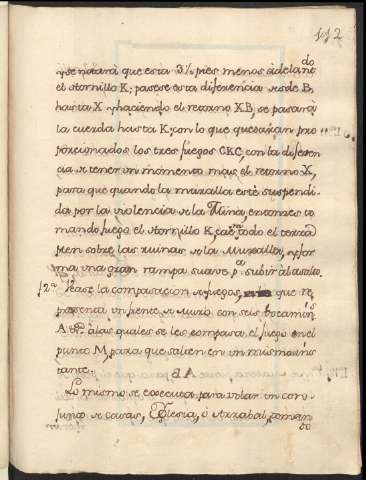 112
y se notará que esta 3½ pies menos adelantado
el Hornillo K; pasese esta diferencia desde B,
hasta X y haciendo el retorno XB, se pasará
la cuerda hasta K; con lo que quedarán pro
porcionados los tres fuegos CKC, con la diferen
cia de tener un momento mas el retorno X,
para que quando la muralla esté suspendi
da por la violencia de la Mina, entonzes to
mando fuego el Hornillo K, cae todo el terra
plen sobre las ruinas de la Muralla, y for
ma una gran rampa suave pa subir al asalto.
12a. Vease la compasacion de fuegos, que re
presenta un frente de Muro, con seis bocamin
A &a. a las quales se les compasa el fuego en el
punto M, para que salten en un mismo ins
tante.
Lo mismo se executa para volar un con
junto de casas, Yglesia, ó Arrabal, toman
do